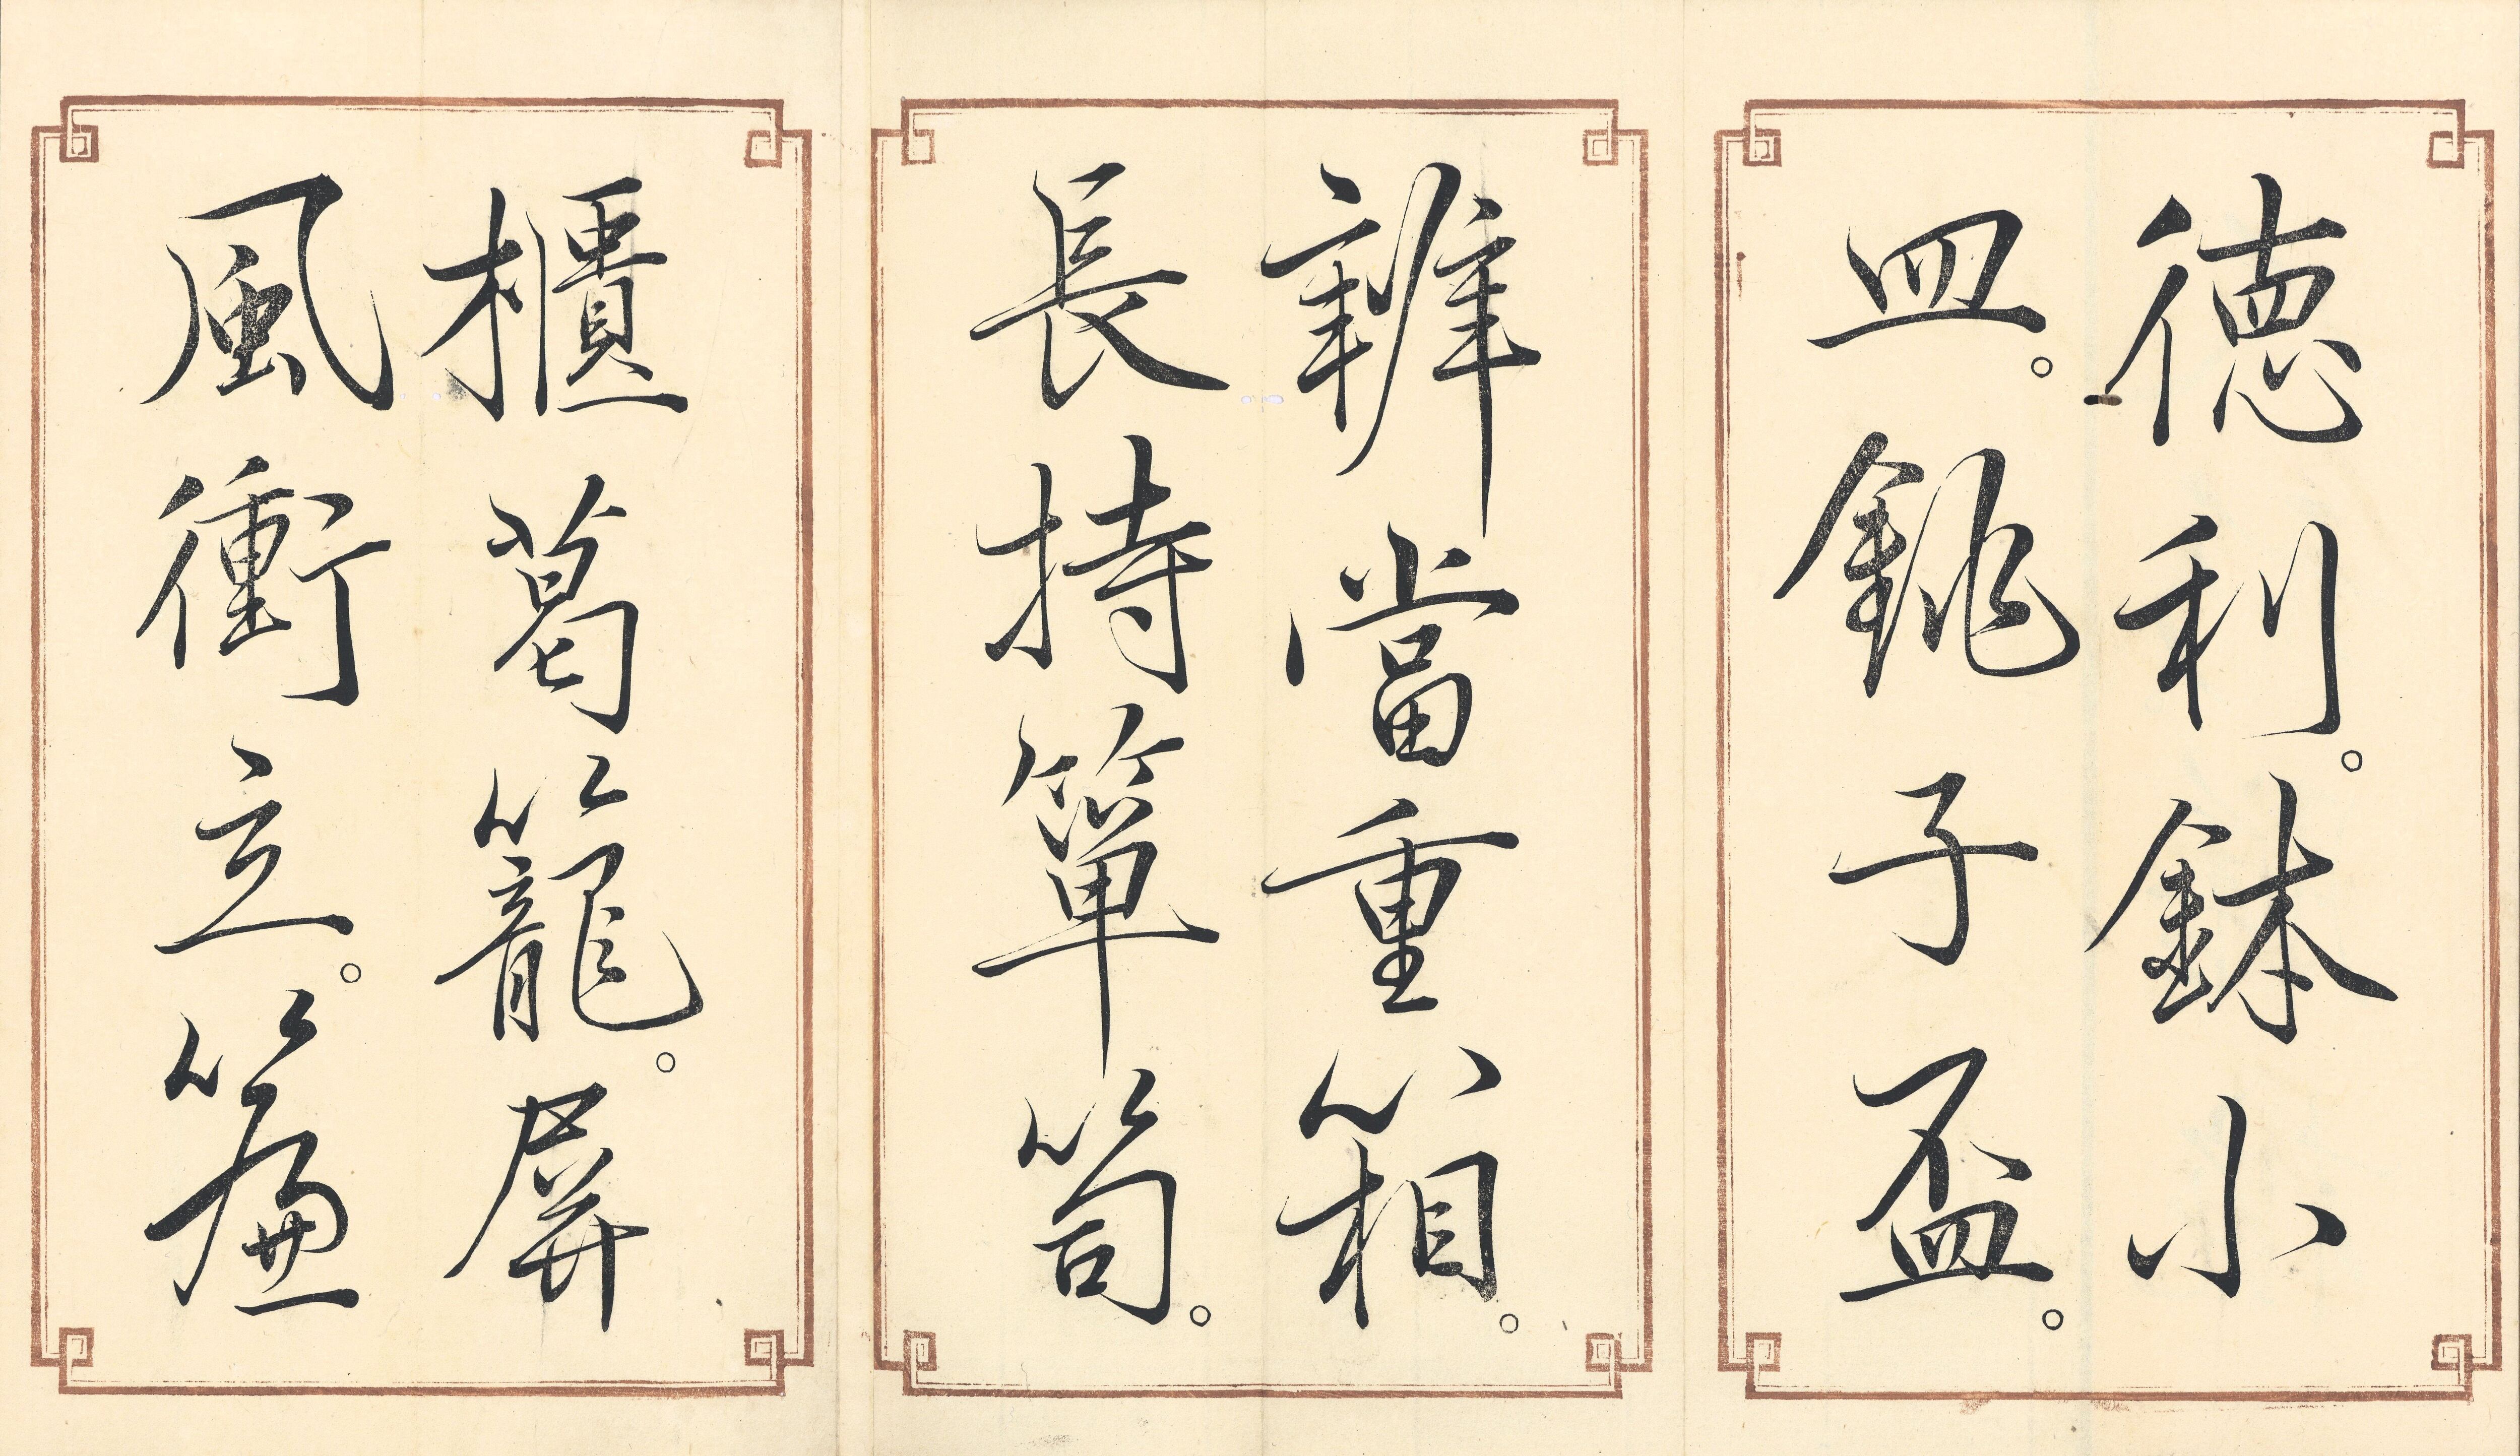 徳利。鉢小
皿。銚子盃。
辨當重箱。
長持簞笥。
櫃葛籠。屏
風衝立。簾